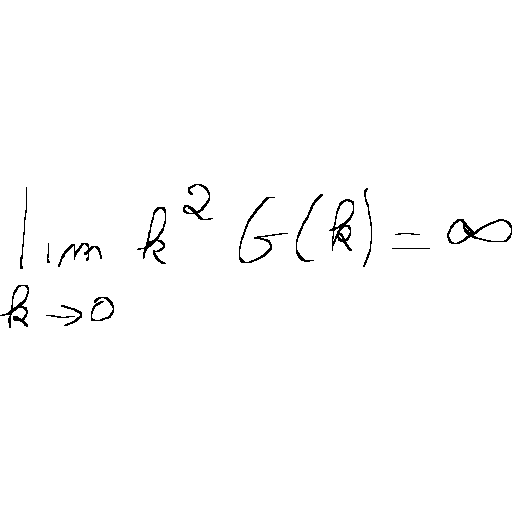 \lim_{k \to 0} k^2 G(k) = \infty